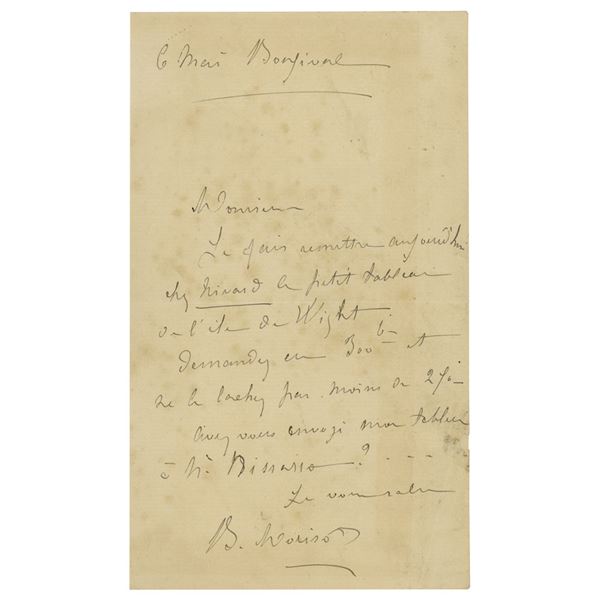 6 Mai Bougival
Monsieur
Je fais remettre aujourd'hui
chez Nivard le petit tableau
de l'ile de Wight
demandez en 300 fr et
ne le lachez pas moins de 250
avez vous envoyé mon tableau
à Mr Pissarro ? . . .
Je vous salue
B. Morisot